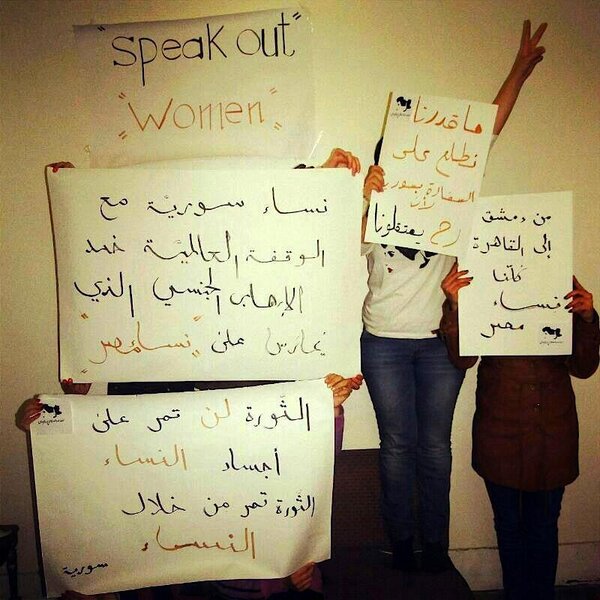 "speak out"
"women"
نساء سورية مع
الوقفة العالمية ضد
الإرهاب الجنسي الذي
يمارس على "نساء مصر"
الثورة لن تمر على
أجساد النساء
الثورة تمر من خلال
النساء
سورية
ما قدرنا
نطلع على
السفارة بسوريا
لأن
رح يعتقلونا
من دمشق
إلى القاهرة
كلنا
نساء
مصر